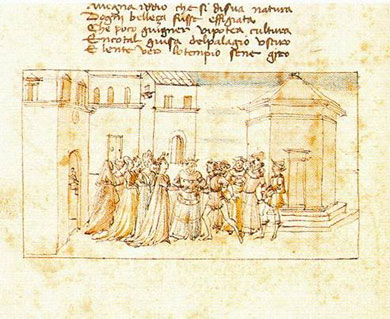 iddio che si disua natura
Dogni belleça fusse effigiata
Che poco giugner vi potea cultura
Encotal guisa delpalagio usciro
E lente ver lotempio sene giro